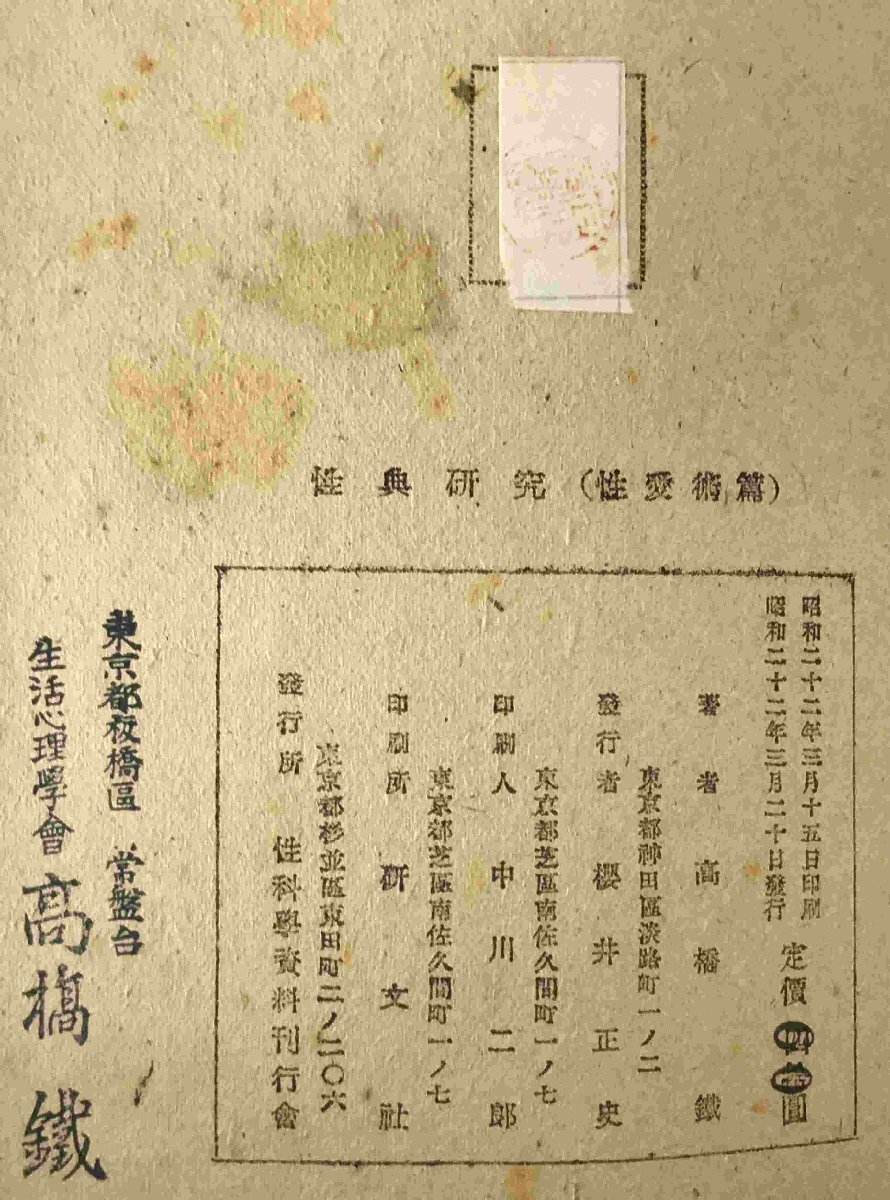 性典研究（性愛術篇）
昭和二十二年三月十五日印刷
昭和二十二年三月二十日發行
定價 圓
著者 高橋鐵
東京都神田區淡路町一ノ二
發行者 櫻井正史
東京都芝區南佐久間町一ノ七
印刷人 中川二郎
東京都芝區南佐久間町一ノ七
印刷所 研文社
東京都杉並區東田町二ノ二〇六
發行所 性科學資料刊行會
東京都板橋區 常盤台
生活心理學會 高橋 鐵